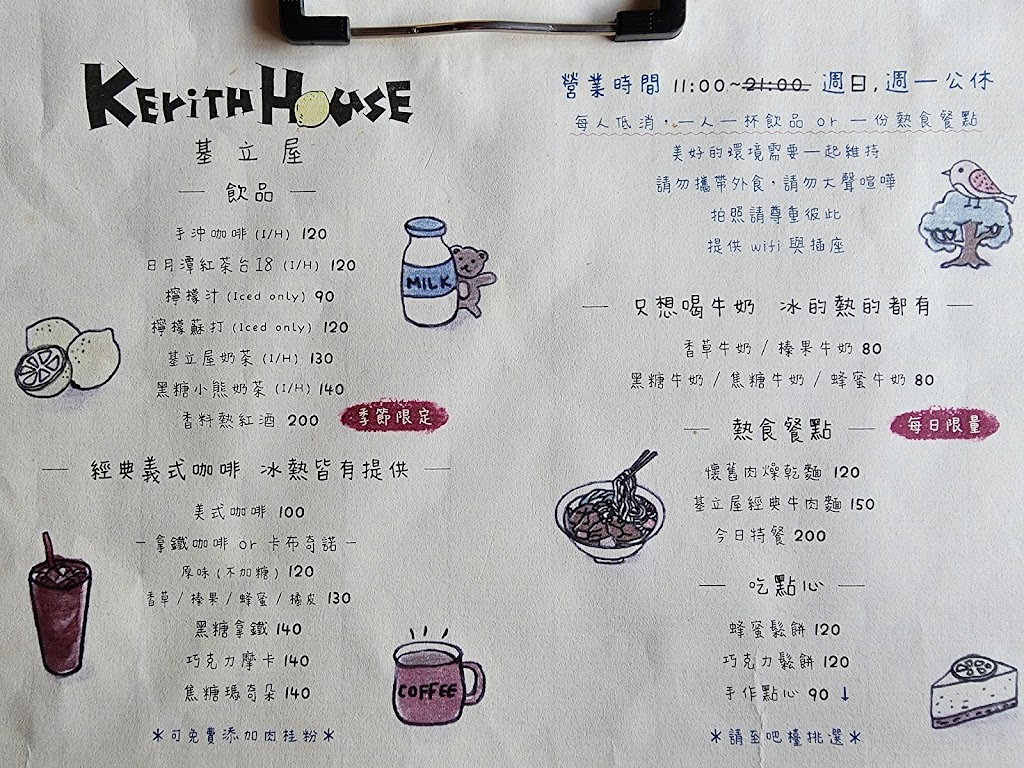 KerithHouse
基立屋
飲品
手沖咖啡 (I/H) 120
日月潭紅茶台18 (I/H) 120
檸檬汁 (Iced only) 90
檸檬蘇打 (Iced only) 120
基立屋奶茶 (I/H) 130
黑糖小熊奶茶 (I/H) 140
香料熱紅酒 200 季節限定
MILK
經典義式咖啡 冰熱皆有提供
美式咖啡 100
拿鐵咖啡 or 卡布奇諾
原味 (不加糖) 120
香草 / 榛果 / 蜂蜜 / 橘皮 130
黑糖拿鐵 140
巧克力摩卡 140
焦糖瑪奇朵 140
COFFEE
*可免費添加肉桂粉*
營業時間 11:00~21:00 週日,週一公休
每人低消,一人一杯飲品 or 一份熱食餐點
美好的環境需要一起維持
請勿攜帶外食,請勿大聲喧嘩
拍照請尊重彼此
提供 wifi 與插座
只想喝牛奶 冰的熱的都有
香草牛奶 / 榛果牛奶 80
黑糖牛奶 / 焦糖牛奶 / 蜂蜜牛奶 80
熱食餐點 每日限量
懷舊肉燥乾麵 120
基立屋經典牛肉麵 150
今日特餐 200
吃點心
蜂蜜鬆餅 120
巧克力鬆餅 120
手作點心 90 ↓
*請至吧檯挑選*